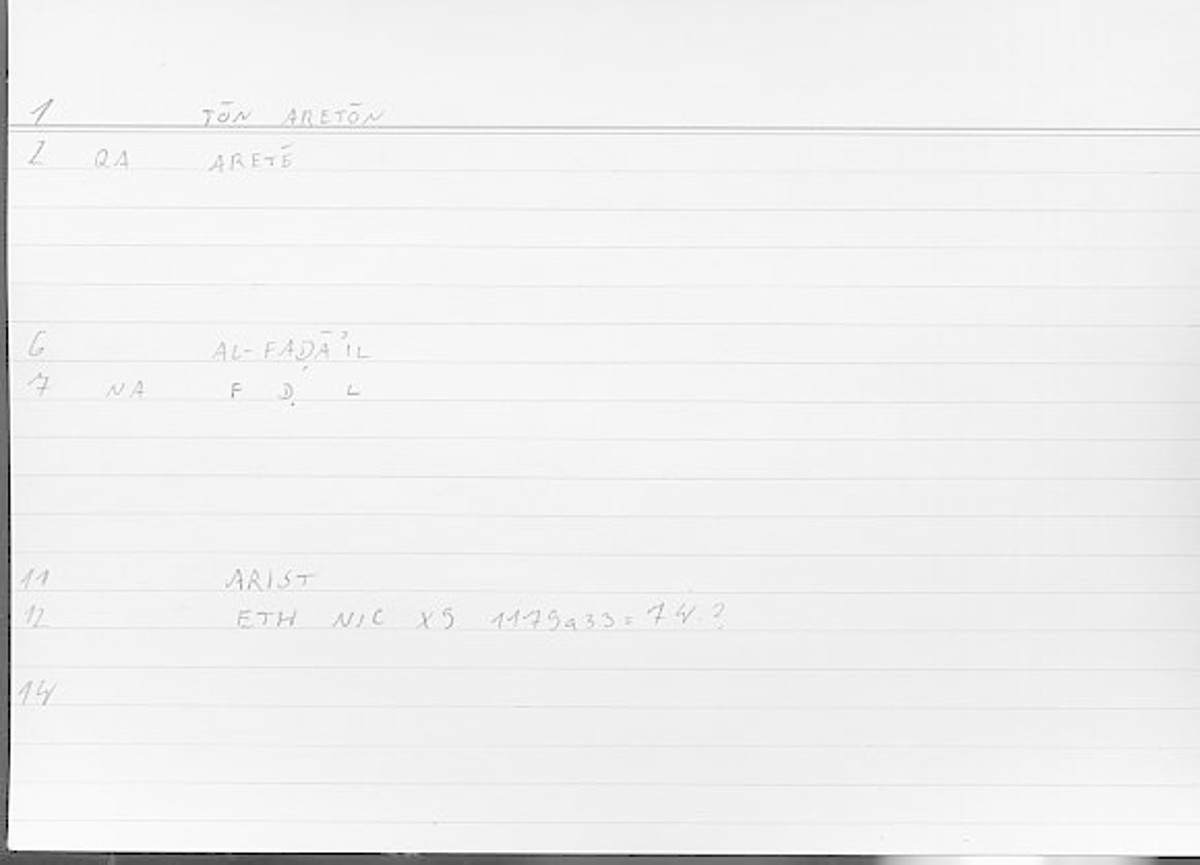 1 TŌN ARETŌN
2 QA ARETĒ
6 AL-FAḌĀʾIL
7 NA F Ḍ L
11 ARIST
12 ETH NIC X9 1179a33 = 74.?
14